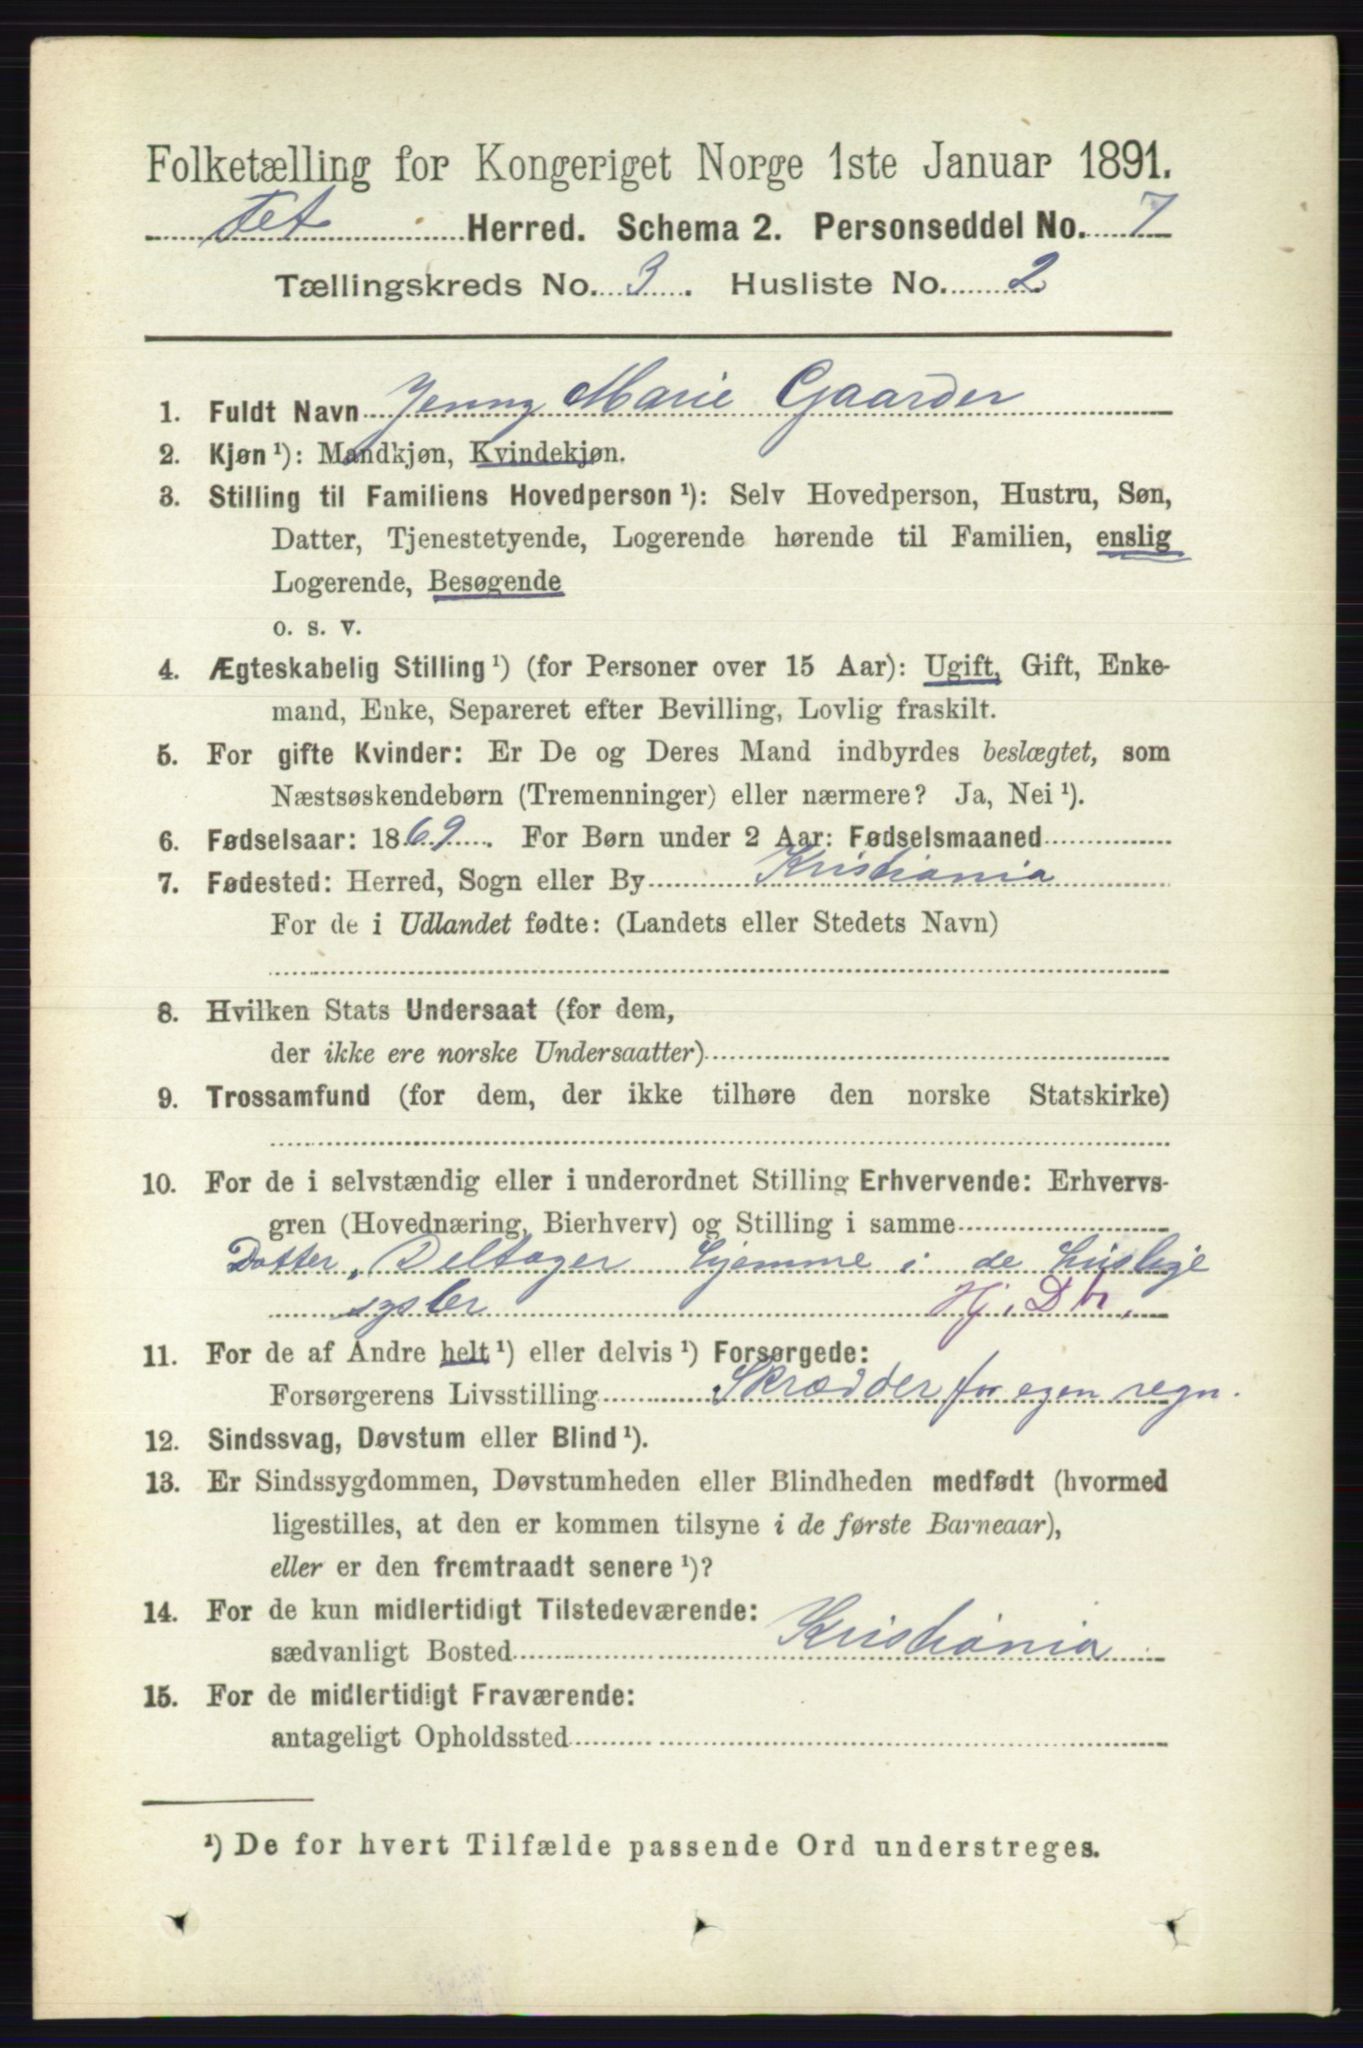 Folketælling for Kongeriget Norge 1ste Januar 1891.
Fet Herred. Schema 2. Personseddel No. 7
Tællingskreds No. 3. Husliste No. 2
1. Fuldt Navn Jenny Marie Gaarder
2. Kjøn ¹): Mandkjøn, Kvindekjøn.
3. Stilling til Familiens Hovedperson ¹): Selv Hovedperson, Hustru, Søn,
Datter, Tjenestetyende, Logerende hørende til Familien, enslig
Logerende, Besøgende
o. s. v.
4. Ægteskabelig Stilling ¹) (for Personer over 15 Aar): Ugift, Gift, Enke-
mand, Enke, Separeret efter Bevilling, Lovlig fraskilt.
5. For gifte Kvinder: Er De og Deres Mand indbyrdes beslægtet, som
Næstsøskendebørn (Tremenninger) eller nærmere? Ja, Nei ¹).
6. Fødselsaar: 1869. For Børn under 2 Aar: Fødselsmaaned
7. Fødested: Herred, Sogn eller By Kristiania
For de i Udlandet fødte: (Landets eller Stedets Navn)
8. Hvilken Stats Undersaat (for dem,
der ikke ere norske Undersaatter)
9. Trossamfund (for dem, der ikke tilhøre den norske Statskirke)
10. For de i selvstændig eller i underordnet Stilling Erhvervende: Erhvervs-
gren (Hovednæring, Bierhverv) og Stilling i samme
Datter, Deltager hjemme i de huslige
sysler Hj. D tr.
11. For de af Andre helt ¹) eller delvis ¹) Forsørgede:
Forsørgerens Livsstilling Skrædder for egen regn.
12. Sindssvag, Døvstum eller Blind ¹).
13. Er Sindssygdommen, Døvstumheden eller Blindheden medfødt (hvormed
ligestilles, at den er kommen tilsyne i de første Barneaar),
eller er den fremtraadt senere ¹)?
14. For de kun midlertidigt Tilstedeværende:
sædvanligt Bosted Kristiania
15. For de midlertidigt Fraværende:
antageligt Opholdssted
¹) De for hvert Tilfælde passende Ord understreges.